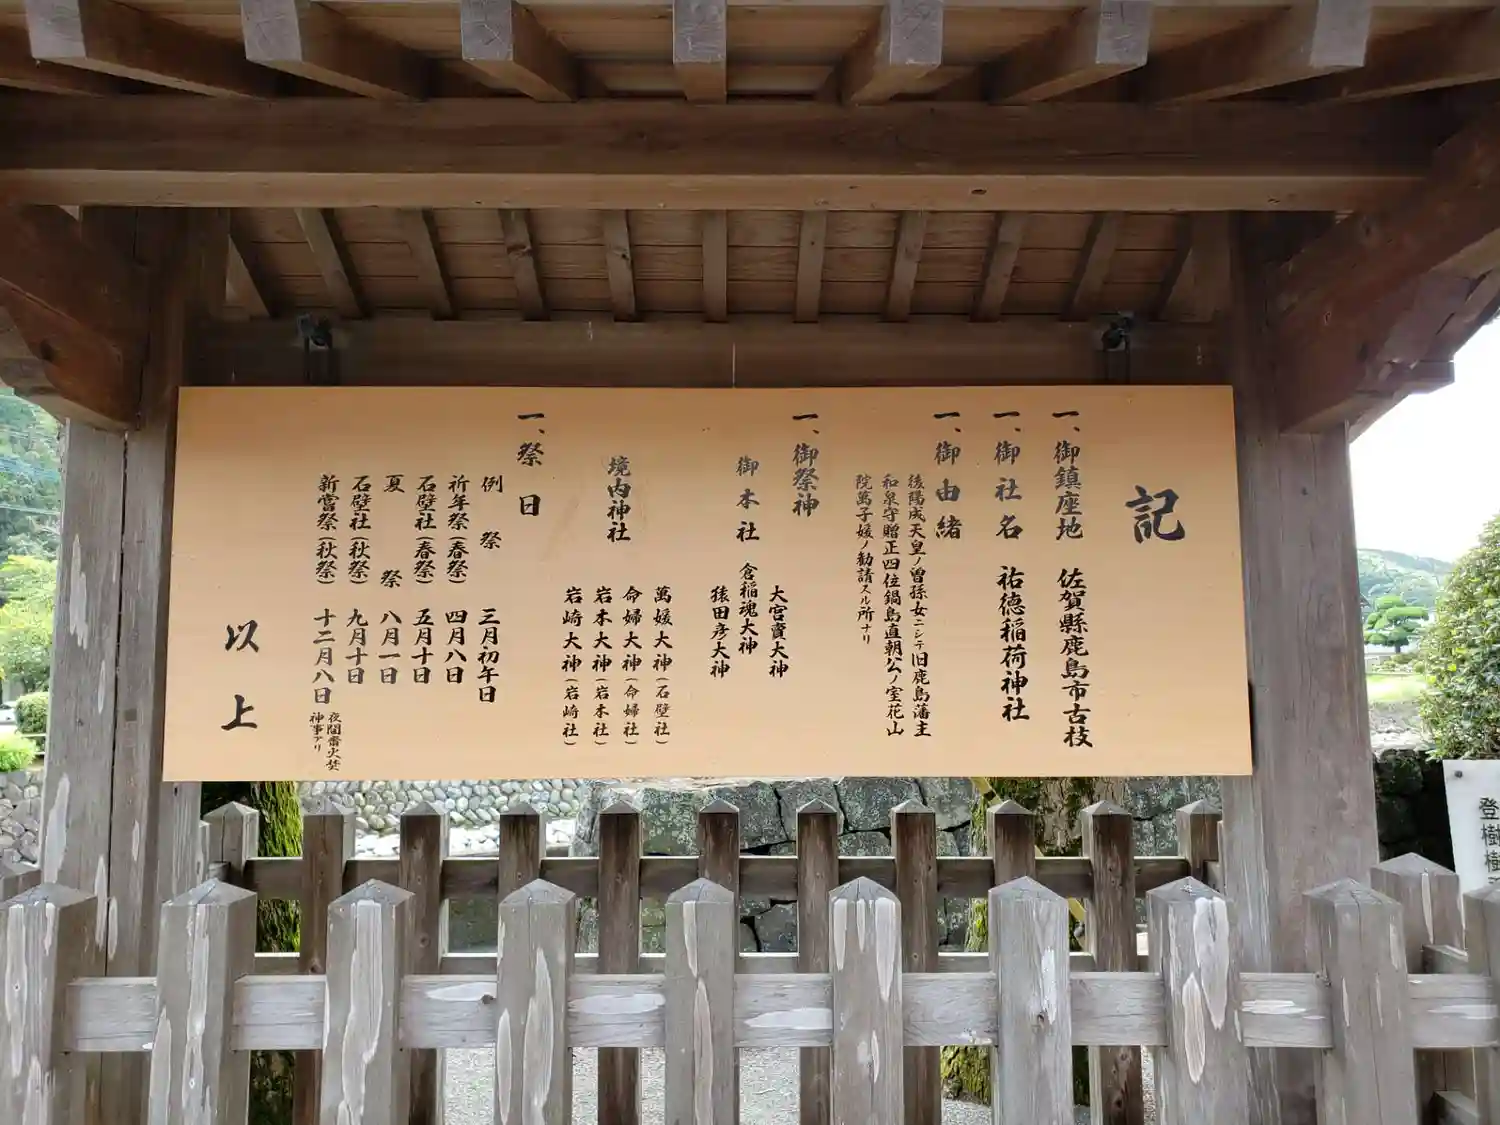 記
一、御鎮座地 佐賀縣鹿島市古枝
一、御社名 祐德稲荷神社
一、御由緒
後陽成天皇ノ曽孫女ニシテ旧鹿島藩主
和泉守贈正四位鍋島直朝公ノ室花山
院萬子媛ノ勧請スル所ナリ
一、御祭神
大宮賣大神
御本社 倉稲魂大神
猿田彦大神
境内神社
萬媛大神(石壁社)
命婦大神(命婦社)
岩本大神(岩本社)
岩崎大神(岩崎社)
一、祭日
例祭 三月初午日
祈年祭(春祭) 四月八日
石壁社(春祭) 五月十日
夏祭 八月一日
石壁社(秋祭) 九月十日
新嘗祭(秋祭) 十二月八日 夜間齋火焚
神事アリ
以上
登樹